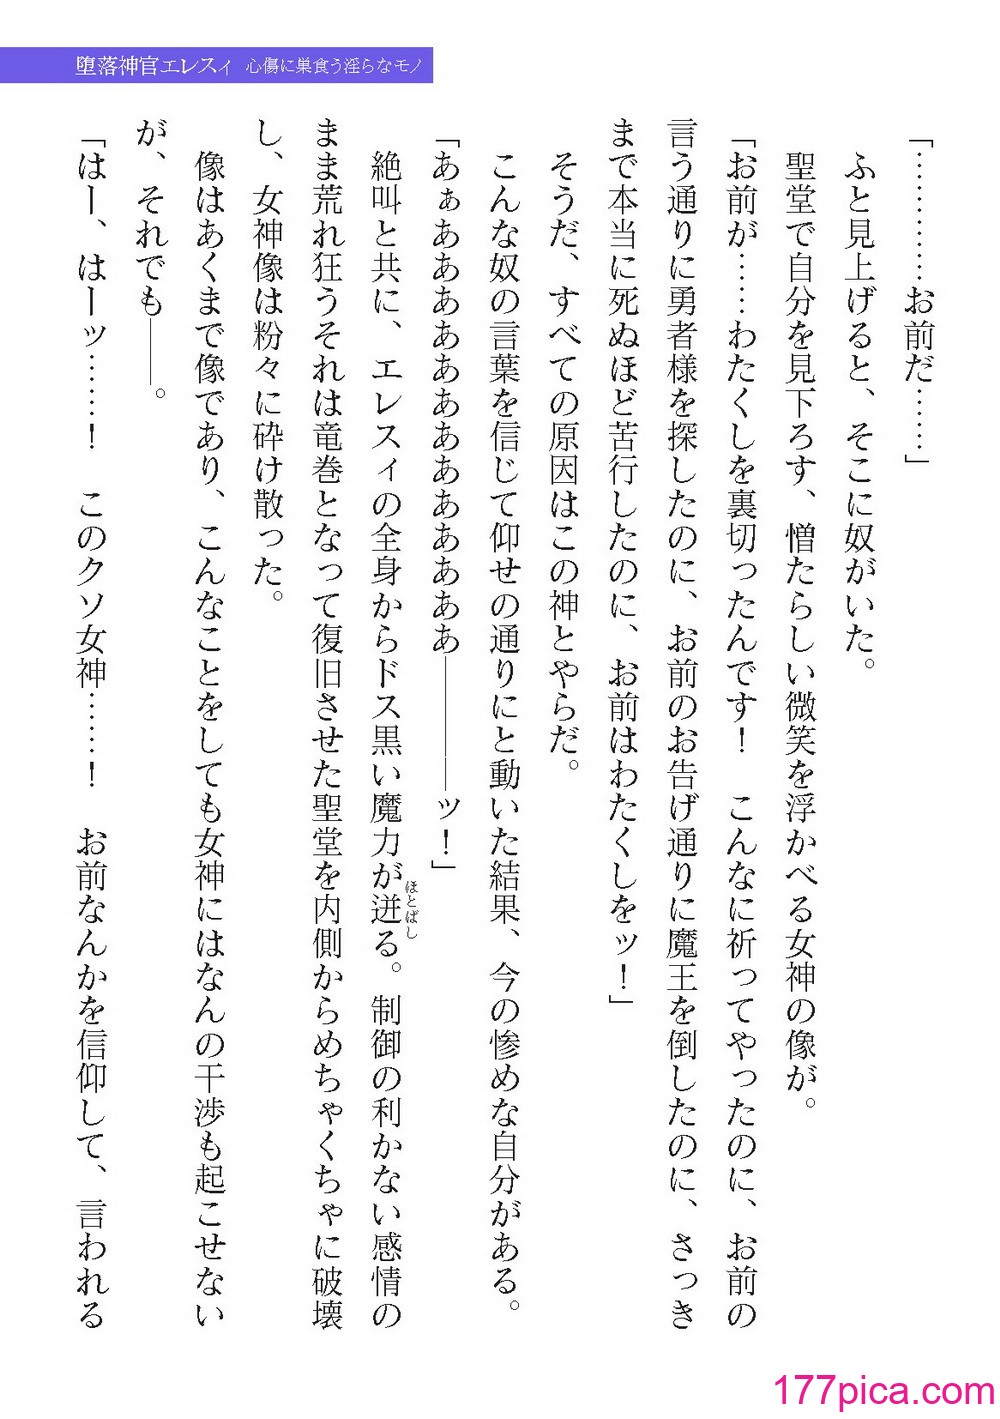 堕落神官エレスィ 心傷に巣食う淫らなモノ
「…………お前だ……」
ふと見上げると、そこに奴がいた。
聖堂で自分を見下ろす、憎たらしい微笑を浮かべる女神の像が。
「お前が……わたくしを裏切ったんです！　こんなに祈ってやったのに、お前の
言う通りに勇者様を探したのに、お前のお告げ通りに魔王を倒したのに、さっき
まで本当に死ぬほど苦行したのに、お前はわたくしをッ！」
そうだ、すべての原因はこの神とやらだ。
こんな奴の言葉を信じて仰せの通りにと動いた結果、今の惨めな自分がある。
「あぁああああああああああああああ――――ッ！」
絶叫と共に、エレスィの全身からドス黒い魔力が迸る。制御の利かない感情の
ほとばし
まま荒れ狂うそれは竜巻となって復旧させた聖堂を内側からめちゃくちゃに破壊
し、女神像は粉々に砕け散った。
像はあくまで像であり、こんなことをしても女神にはなんの干渉も起こせない
が、それでも――。
「はー、はーッ……！　このクソ女神……！　お前なんかを信仰して、言われる
177pica.com